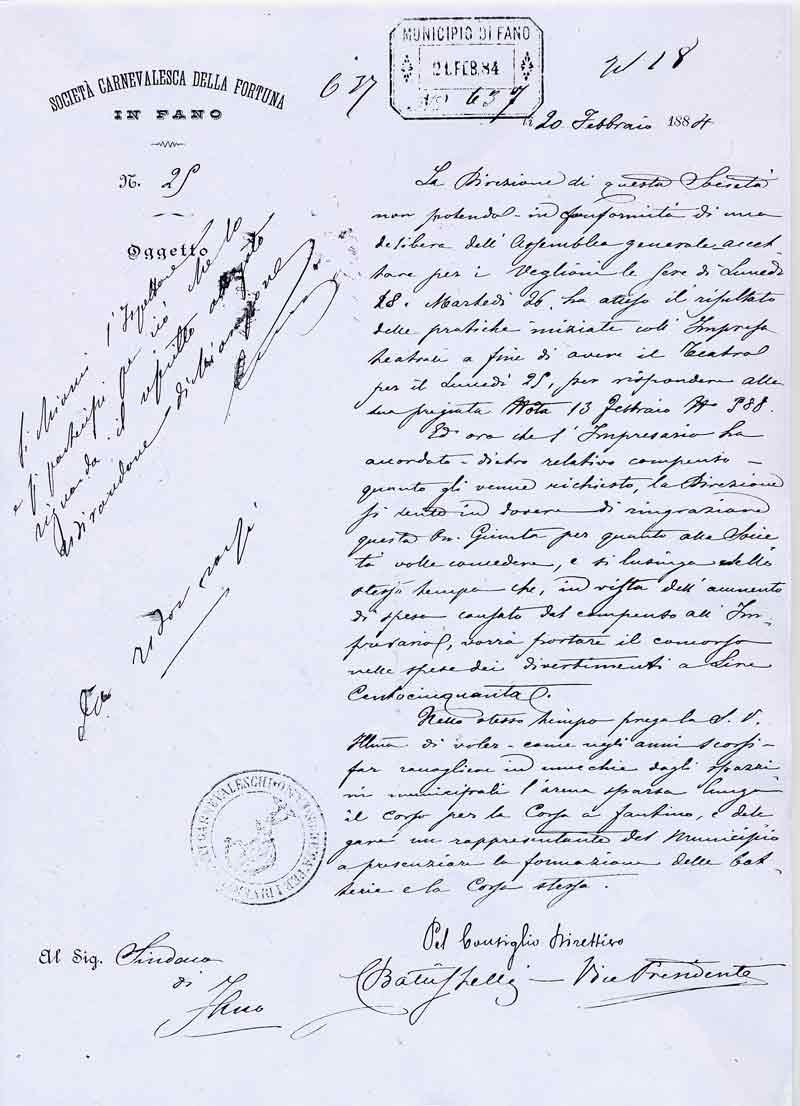 SOCIETÀ CARNEVALESCA DELLA FORTUNA
IN FANO
N. 25
Oggetto
637
MUNICIPIO DI FANO
21.FEB.84
No 637
li 20 Febbraio 1884
La Direzione di questa Società
non potendo in conformità di una
delibera dell'Assemblea generale accet-
tare per i Veglioni le sere di Lunedì
18. Martedì 26. ha atteso il risultato
delle pratiche iniziate coll'Impresa
teatrale a fine di avere il Teatro
per il Lunedì 25, per rispondere alla
sua pregiata Nota 13 Febbraio No 588.
Ed ora che l'Impresario ha
accordato - dietro relativo compenso -
quanto gli venne richiesto, la Direzione
si sente in dovere di ringraziare
questa On. Giunta per quanto alla Socie
tà volle concedere, e si lusinga nello
stesso tempo che, in vista dell'aumento
di spesa causato dal compenso all'Im-
presario, vorrà portare il concorso
nelle spese dei divertimenti a Lire
Centocinquanta.
Nello stesso tempo prega la S. V.
Illma di voler - come negli anni scorsi -
far raccogliere in mucchi dagli spazzi
ni municipali l'arena sparsa lungo
il corso per la Corsa a fantino, e dele
gare un rappresentante del Municipio
a presenziare la formazione delle bat-
terie e la Corsa stessa.
Pel Consiglio Direttivo
Vice Presidente
Al Sig. Sindaco
di
Fano
Si chiami l'Ispettore
e si partecipi per ciò che lo
riguarda il